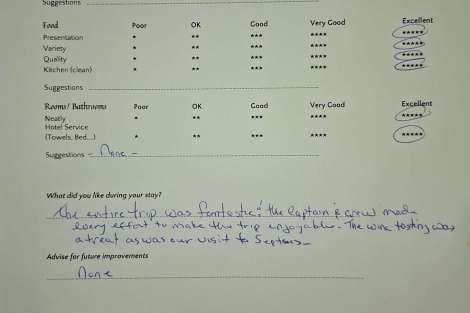 Suggestions
Food Poor OK Good Very Good Excellent
Presentation * ** *** **** *****
Variety * ** *** **** *****
Quality * ** *** **** *****
Kitchen (clean) * ** *** **** *****
Suggestions
Rooms/ Bathrooms Poor OK Good Very Good Excellent
Neatly * ** *** **** *****
Hotel Service
(Towels, Bed...) * ** *** **** *****
Suggestions - None -
What did you like during your stay?
The entire trip was fantastic! the Captain & crew made
every effort to make the trip enjoyable. The wine tasting was
a treat as was our visit to
Advise for future improvements
None